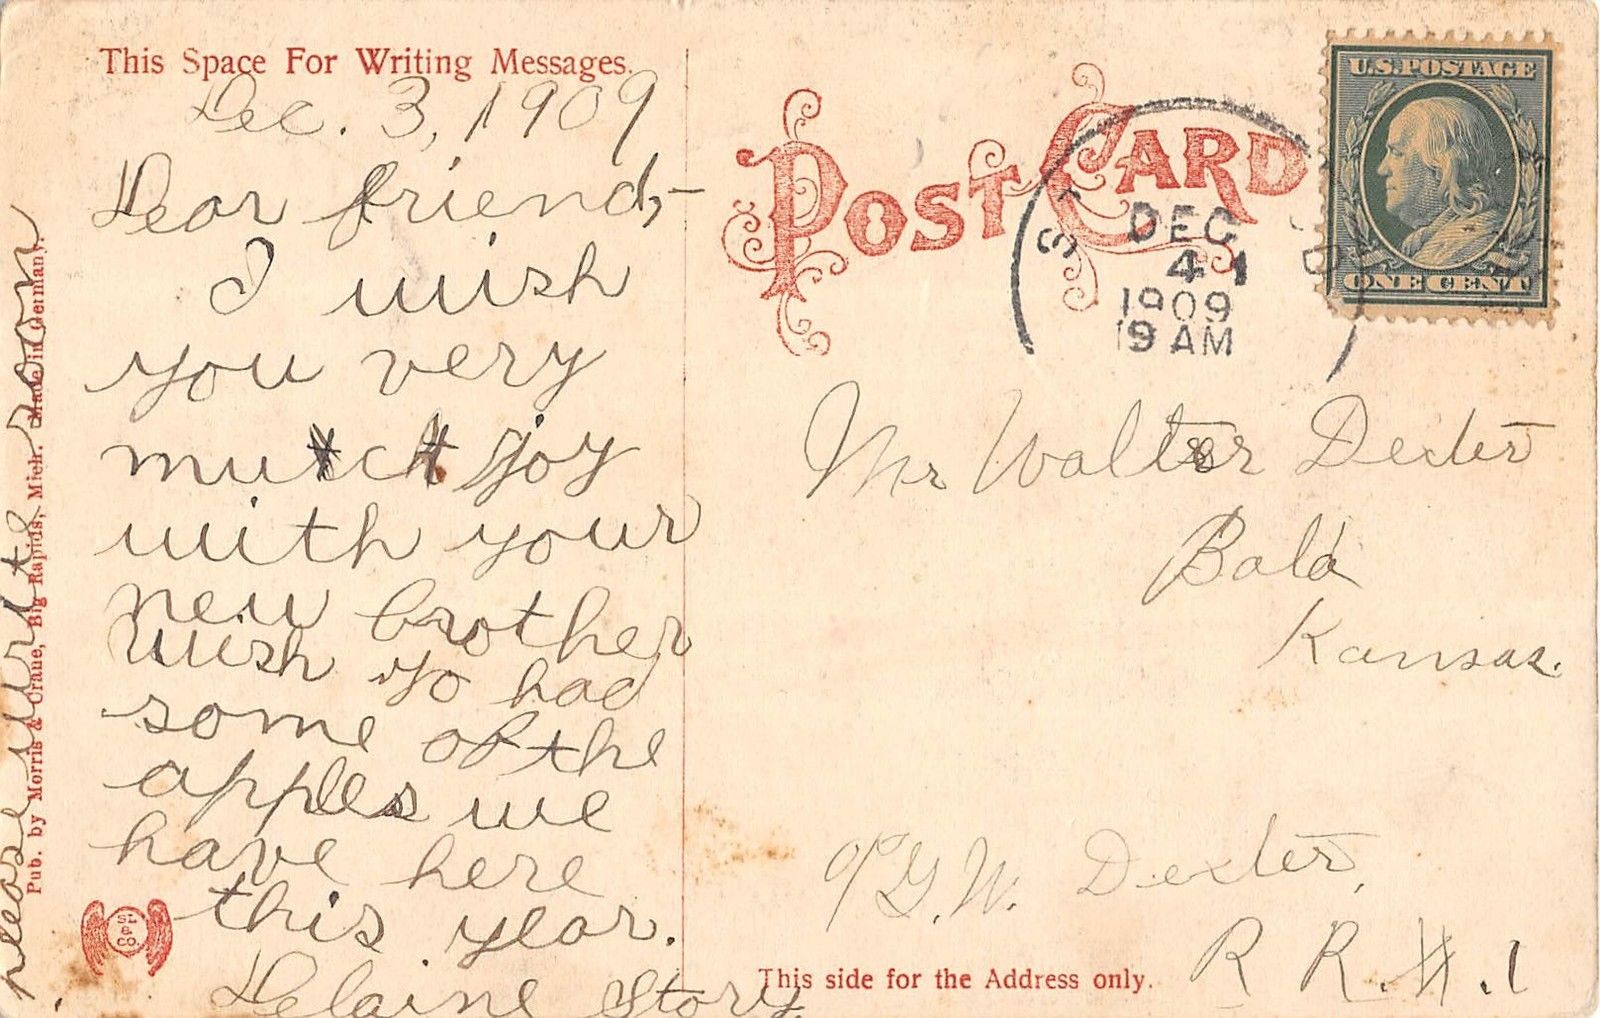 This Space For Writing Messages.
Dec. 3, 1909
Dear friend,-
I wish
you very
mutch joy
with your
new brother
wish yo had
some of the
apples we
have here
this year.
Delaine Story
please write soon
Pub. by Morris & Crane, Big Rapids, Mich. Made in Germany.
SL & CO.
POST CARD
DEC
4
1909
9 AM
U.S. POSTAGE
ONE CENT
Mr Walter Dexter
Bala
Kansas.
G. W. Dexter,
R R. #. 1
This side for the Address only.